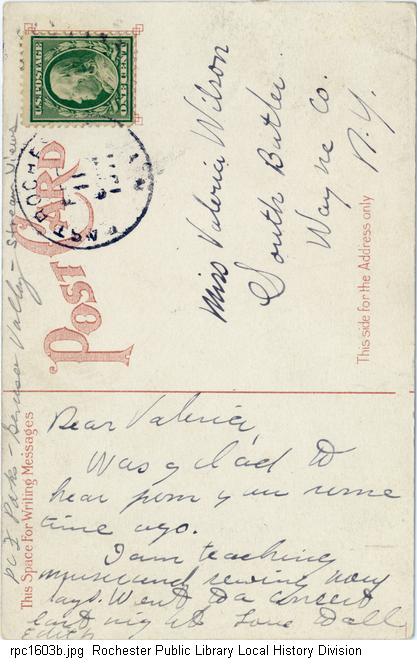 U.S. POSTAGE
ONE CENT
EAST ROCHE
11
POST CARD
Miss Valeria Wilson
South Butler
Wayne Co.
N.Y.
This side for the Address only
This Space For Writing Messages
PCI Parks - Genesee Valley - Stream Views
Dear Valeria,
Was glad to
hear from you some
time ago.
I am teaching
music and sewing now
days. Went to a concert
last night. Love
Edith
rpc1603b.jpg Rochester Public Library Local History Division